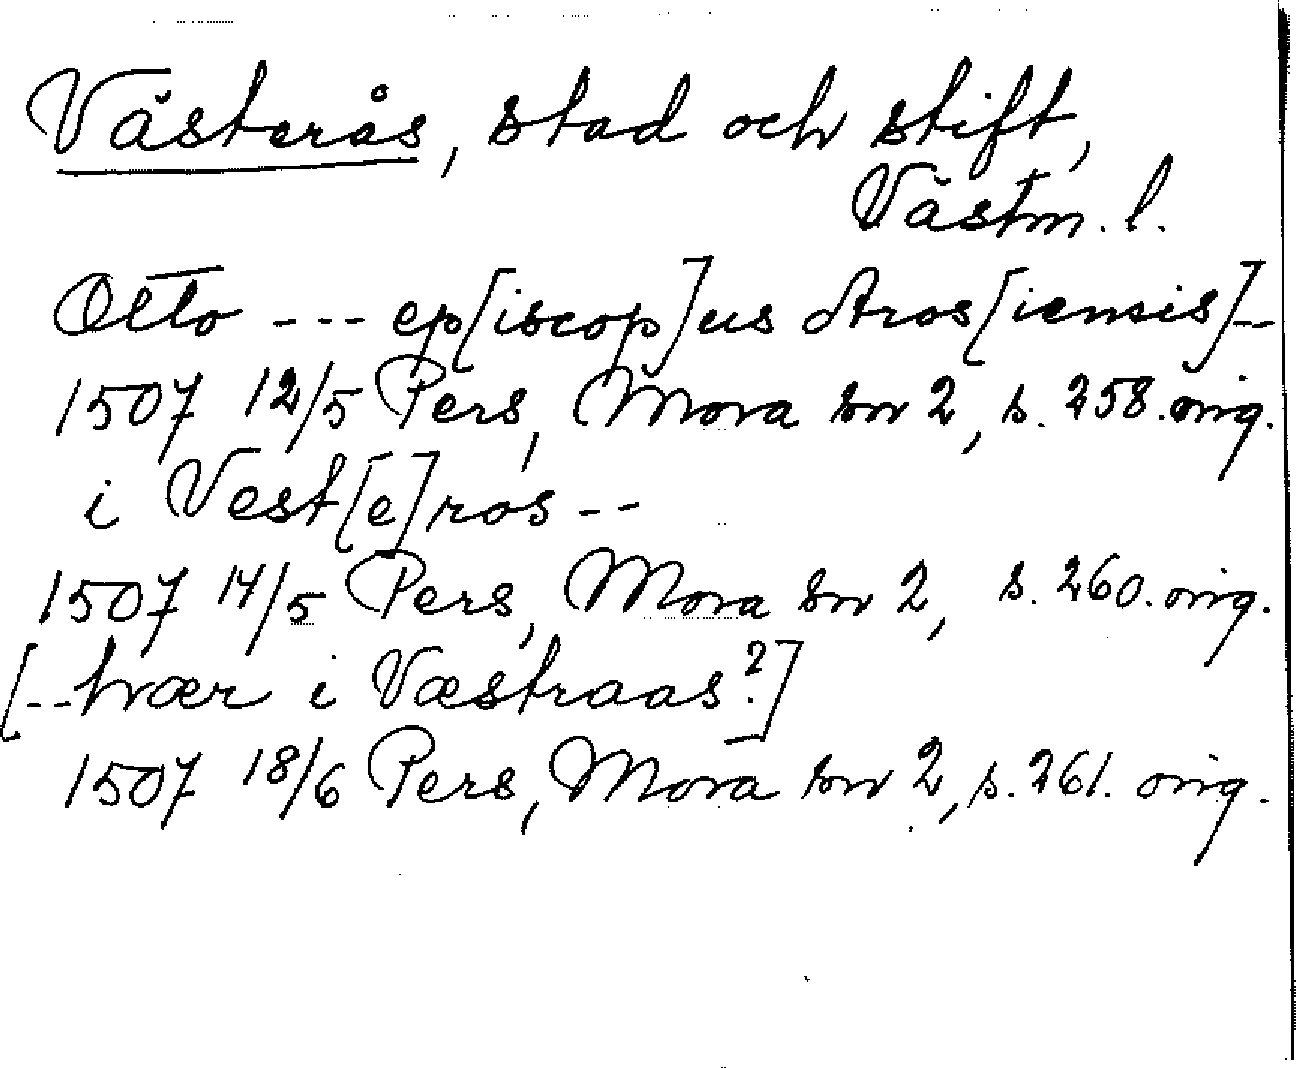 Västerås, stad och stift,
Västm. l.
Otto --- ep[iscop]us Aros[iensis]--
1507 12/5 Pers, Mora sn 2, s. 258. orig.
i Vest[e]ros --
1507 14/5 Pers, Mora sn 2, s. 260. orig.
[--hvær i Væstraas?]
1507 18/6 Pers, Mora sn 2, s. 261. orig.